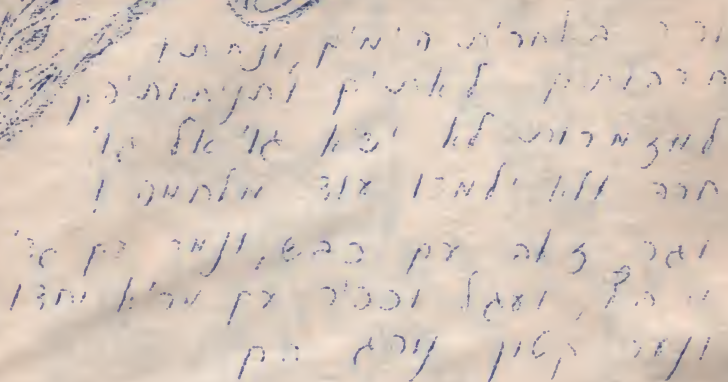 והיה באחרית הימים, וכתתו
חרבותים לאיתים וחניתותיהם
למזמרות לא ישא גוי אל גוי
חרב ולא ילמדו עוד מלחמה
וגר זאב עם כבש, ונמר עם גדי
ירבץ, ועגל וכפיר עם מריא יחדו
ונער קטון נוהג בם